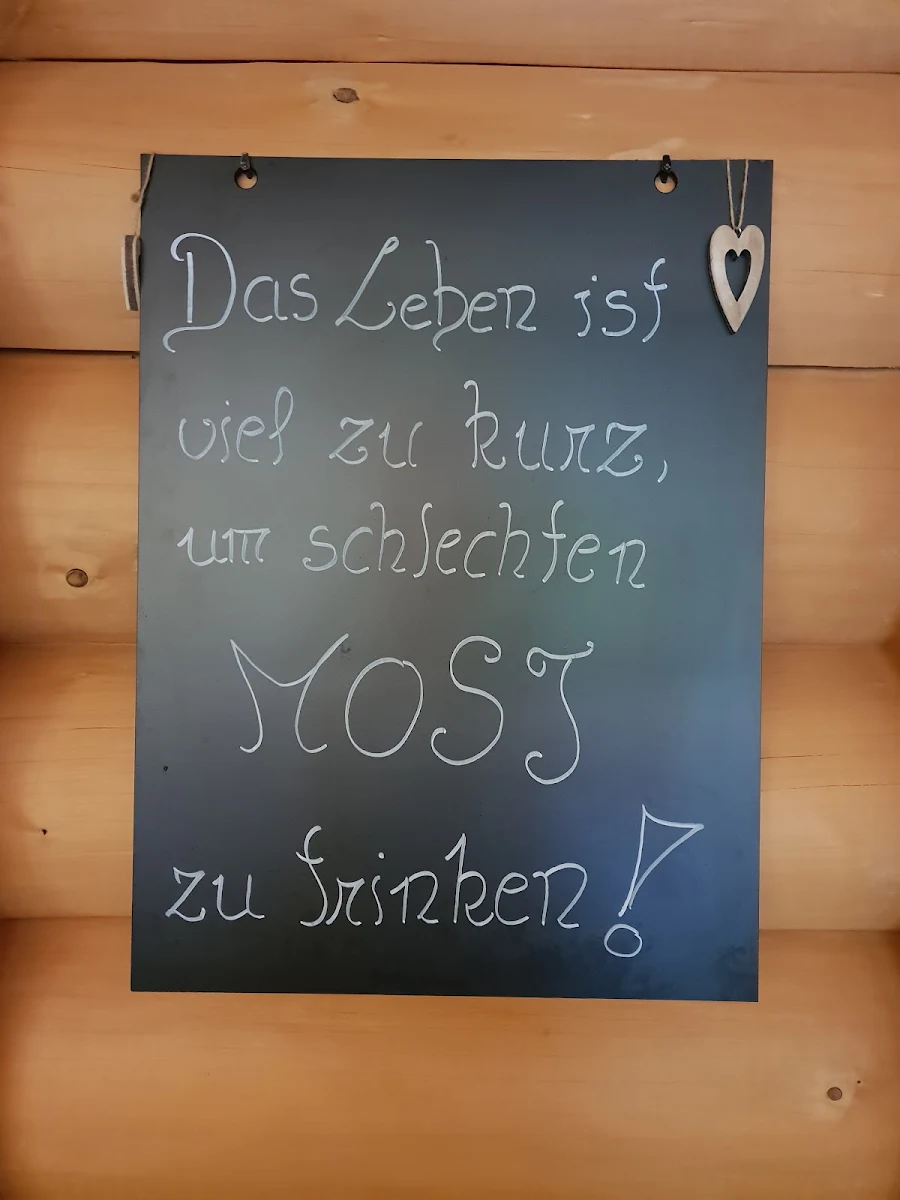 Das Leben ist
viel zu kurz,
um schlechten
MOST
zu trinken!